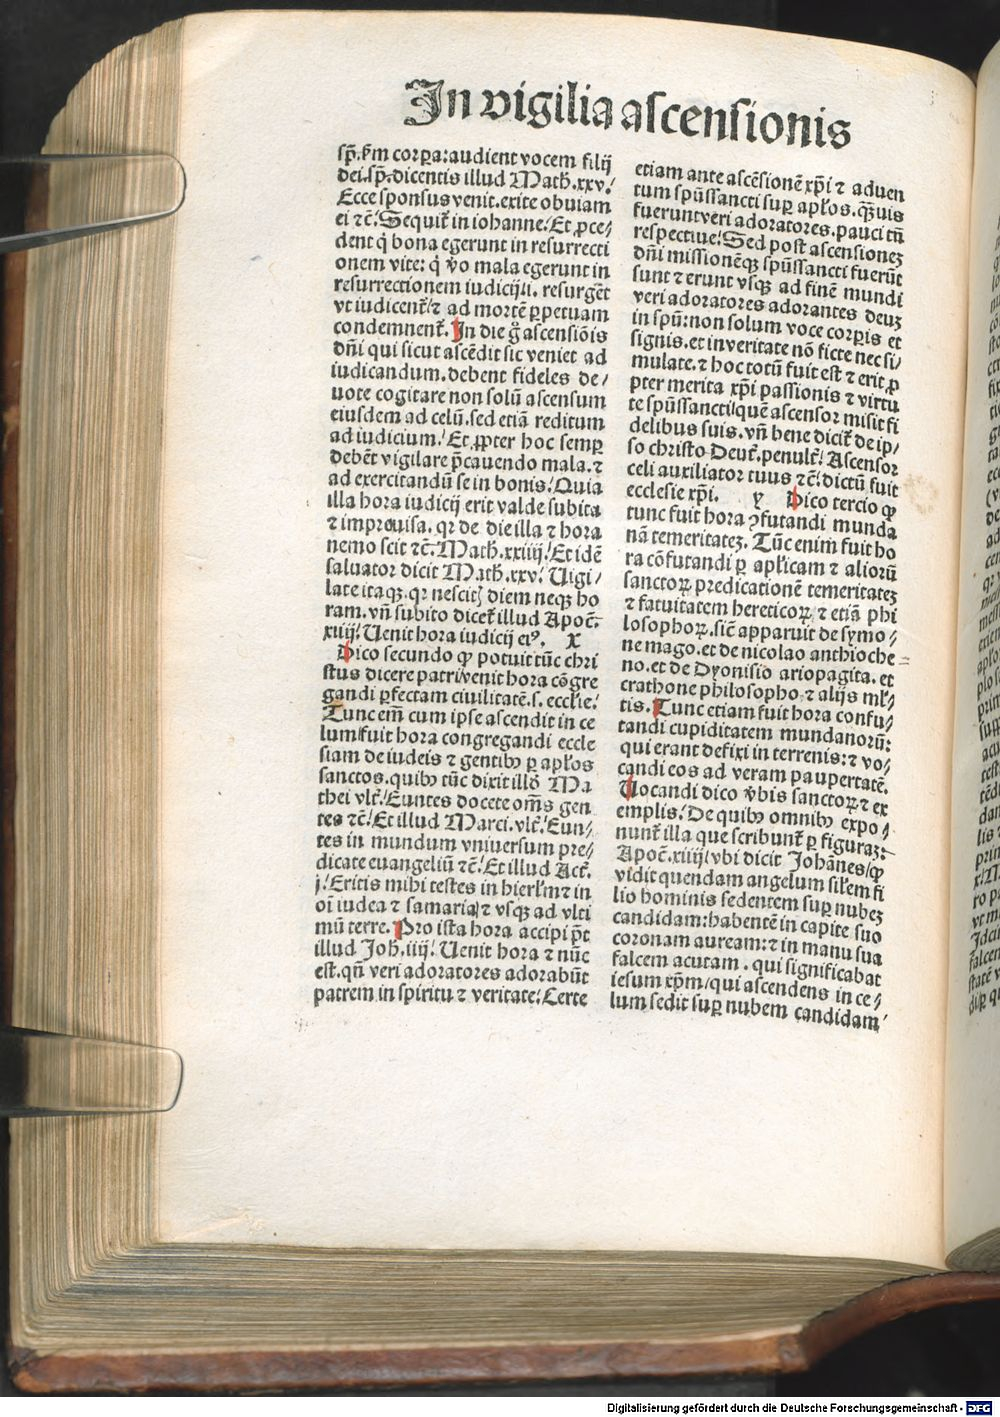 In vigilia ascensionis
sp̄. s̄m corꝑa: audient vocem filij
dei. sp̄. dicentis illud Math. xxv/
Ecce sponsus venit. exite obuiam
ei ⁊c̄. Sequit̄ in iohanne/ Et ꝓce/
dent q̇ bona egerunt in resurrecti
onem vite: q̇ v̊o mala egerunt in
resurrectionem iudicij/ i. resurgēt
vt iudicent̄/ ⁊ ad mortē ꝑpetuam
condemnent̄. In die g̊ ascensiōis
dn̄i qui sicut ascēdit sic veniet ad
iudicandum. debent fideles de/
uote cogitare non solū ascensum
eiusdem ad celū. sed etiā reditum
ad iudicium/ Et ꝓpter hoc semꝑ
debēt vigilare p̄cauendo mala. ⁊
ad exercitandū se in bonis/ Quia
illa hora iudicij erit valde subita
⁊ improuisa. qr de die illa ⁊ hora
nemo scit ⁊c̄. Math. xxiiij/ Et idē
saluator dicit Math. xxv/ Uigi/
late itaqꝫ. qr nescitꝭ diem neqꝫ ho
ram. vn̄ subito dicet̄ illud Apoc̄.
xiiij/ Uenit hora iudicij eiꝰ. X
Dico secundo ꝙ potuit tūc chri
stus dicere patri/ venit hora cōgre
gandi ꝑfectam ciuilitatē. s. eccl̄ie/
Tunc em̄ cum ipse ascendit in ce
lum/ fuit hora congregandi eccle
siam de iudeis ⁊ gentibꝰ ꝑ apl̄os
sanctos. quibꝰ tūc dixit illđ Ma
thei vlt̄/ Euntes docete om̄s gen
tes ⁊c̄/ Et illud Marci. vlt̄/ Eun/
tes in mundum vniuersum pre/
dicate euangeliū ⁊c̄/ Et illud Act̄.
j/ Eritis mihi testes in hierl̄m ⁊ in
oī iudea ⁊ samaria/ ⁊ vsqꝫ ad vlti
mū terre. Pro ista hora accipi pt̄
illud Joh̄. iiij/ Uenit hora ⁊ nūc
est. qn̄ veri adoratores adorabūt
patrem in spiritu ⁊ veritate/ Certe
etiam ante ascēsionē xp̄i ⁊ aduen
tum spūssancti suꝑ apl̄os. q̄uis
fuerunt veri adoratores. pauci tn̄
respectiue/ Sed post ascensioneꝫ
dn̄i missionēqꝫ spūssancti fuerūt
sunt ⁊ erunt vsqꝫ ad finē mundi
veri adoratores adorantes deuꝫ
in spū: non solum voce corꝑis et
signis. et in veritate nō ficte nec si/
mulate. ⁊ hoc totū fuit est ⁊ erit ꝓ
pter merita xp̄i passionis ⁊ virtu
te spūssancti/ quē ascensor misit fi
delibus suis. vn̄ bene dicit̄ de ip/
so christo Deut̄. penult̄/ Ascensor
celi auxiliator tuus ⁊c̄/ dictū fuit
ecclesie xp̄i. y Dico tercio ꝙ
tunc fuit hora ꝯfutandi munda
nā temeritateꝫ. Tūc enim fuit ho
ra cōfutandi ꝑ apl̄icam ⁊ aliorū
sanctoꝝ predicationē temeritateꝫ
⁊ fatuitatem hereticoꝝ ⁊ etiā phi
losophoꝝ. sic̄ apparuit de symo/
ne mago. et de nicolao anthioche
no. et de Dyonisio ariopagita. et
crathone philosopho ⁊ alijs ml̄/
tis. Tunc etiam fuit hora confu/
tandi cupiditatem mundanorū:
qui erant defixi in terrenis: ⁊ vo/
candi eos ad veram paupertatē.
Uocandi dico v̄bis sanctoꝝ ⁊ ex
emplis/ De quibꝰ omnibꝰ expo/
nunt̄ illa que scribunt̄ ꝑ figuraꝫ:
Apoc̄. xiiij/ vbi dicit Johānes/ ꝙ
vidit quendam angelum sil̄em fi
lio hominis sedentem suꝑ nubeꝫ
candidam: habentē in capite suo
coronam auream: ⁊ in manu sua
falcem acutam. qui significabat
iesum xp̄m/ qui ascendens in ce/
lum sedit suꝑ nubem candidam/
Digitalisierung gefördert durch die Deutsche Forschungsgemeinschaft - DFG